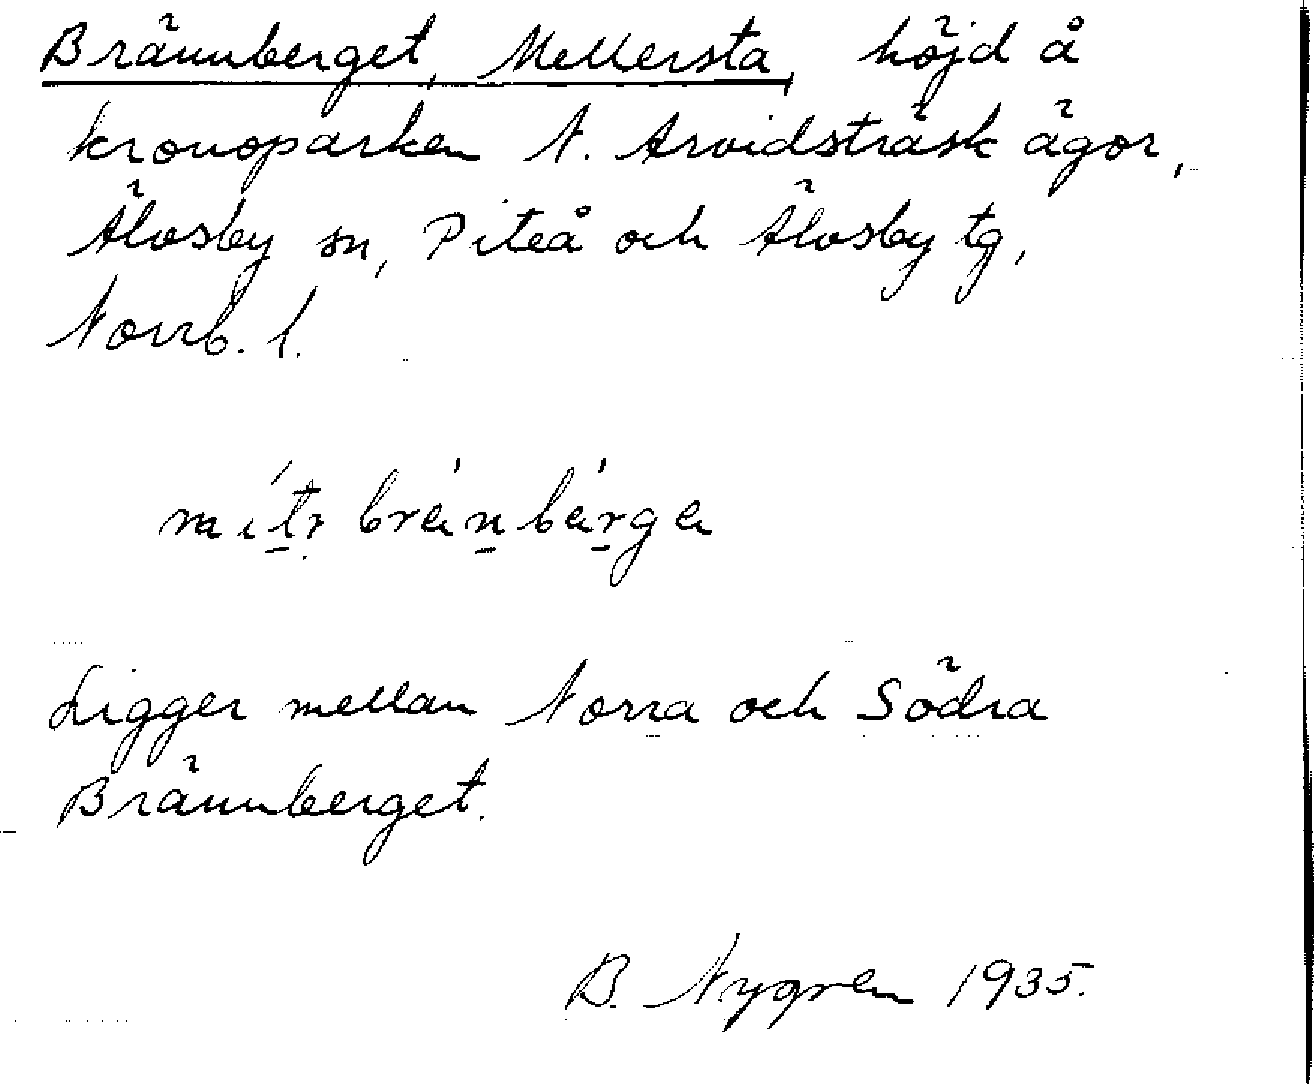 Brännberget, Mellersta, höjd å
kronoparken N. Arvidsträsk ägor,
Älvsby sn, Piteå och Älvsby tg,
Norrb. l.
mítr bränbärga
Ligger mellan Norra och Södra
Brännberget.
B. Nygren 1935.